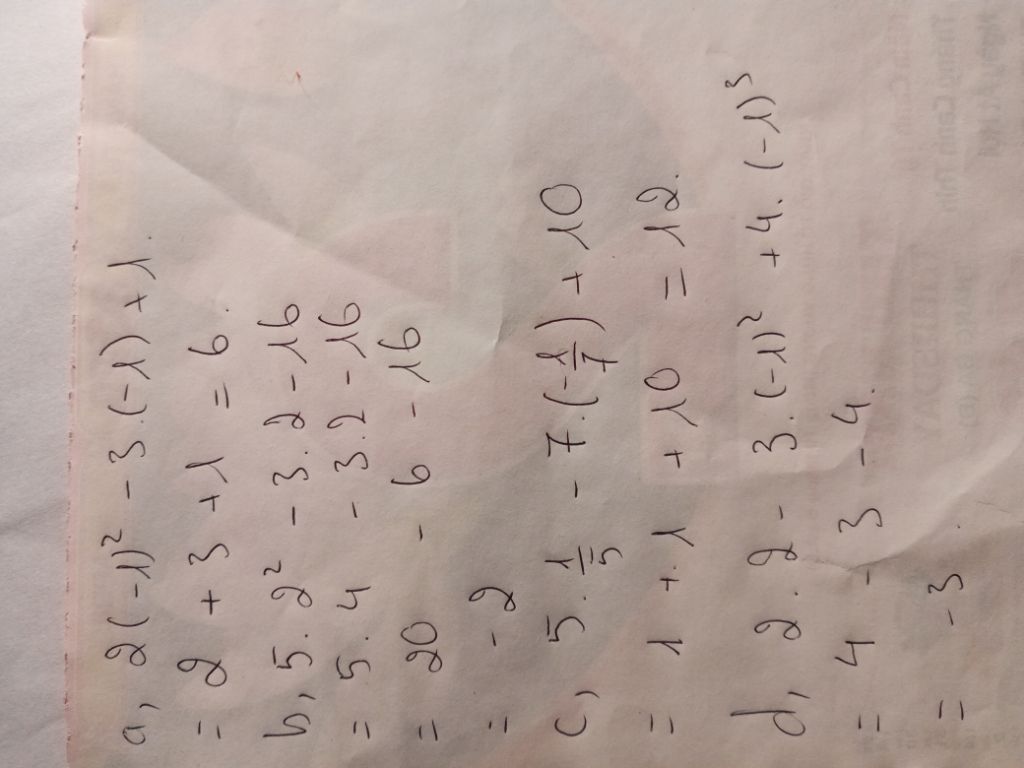 a, 2(-1)² - 3.(-1) + 1.
= 2 + 3 + 1 = 6.
b, 5. 2² - 3. 2 - 16
= 5. 4 - 3. 2 - 16
= 20 - 6 - 16
= - 2
c, 5. 1/5 - 7. (-1/7) + 10
= 1 + 1 + 10 = 12.
d, 2. 2 - 3. (-1)² + 4. (-1)³
= 4 - 3 - 4.
= - 3.